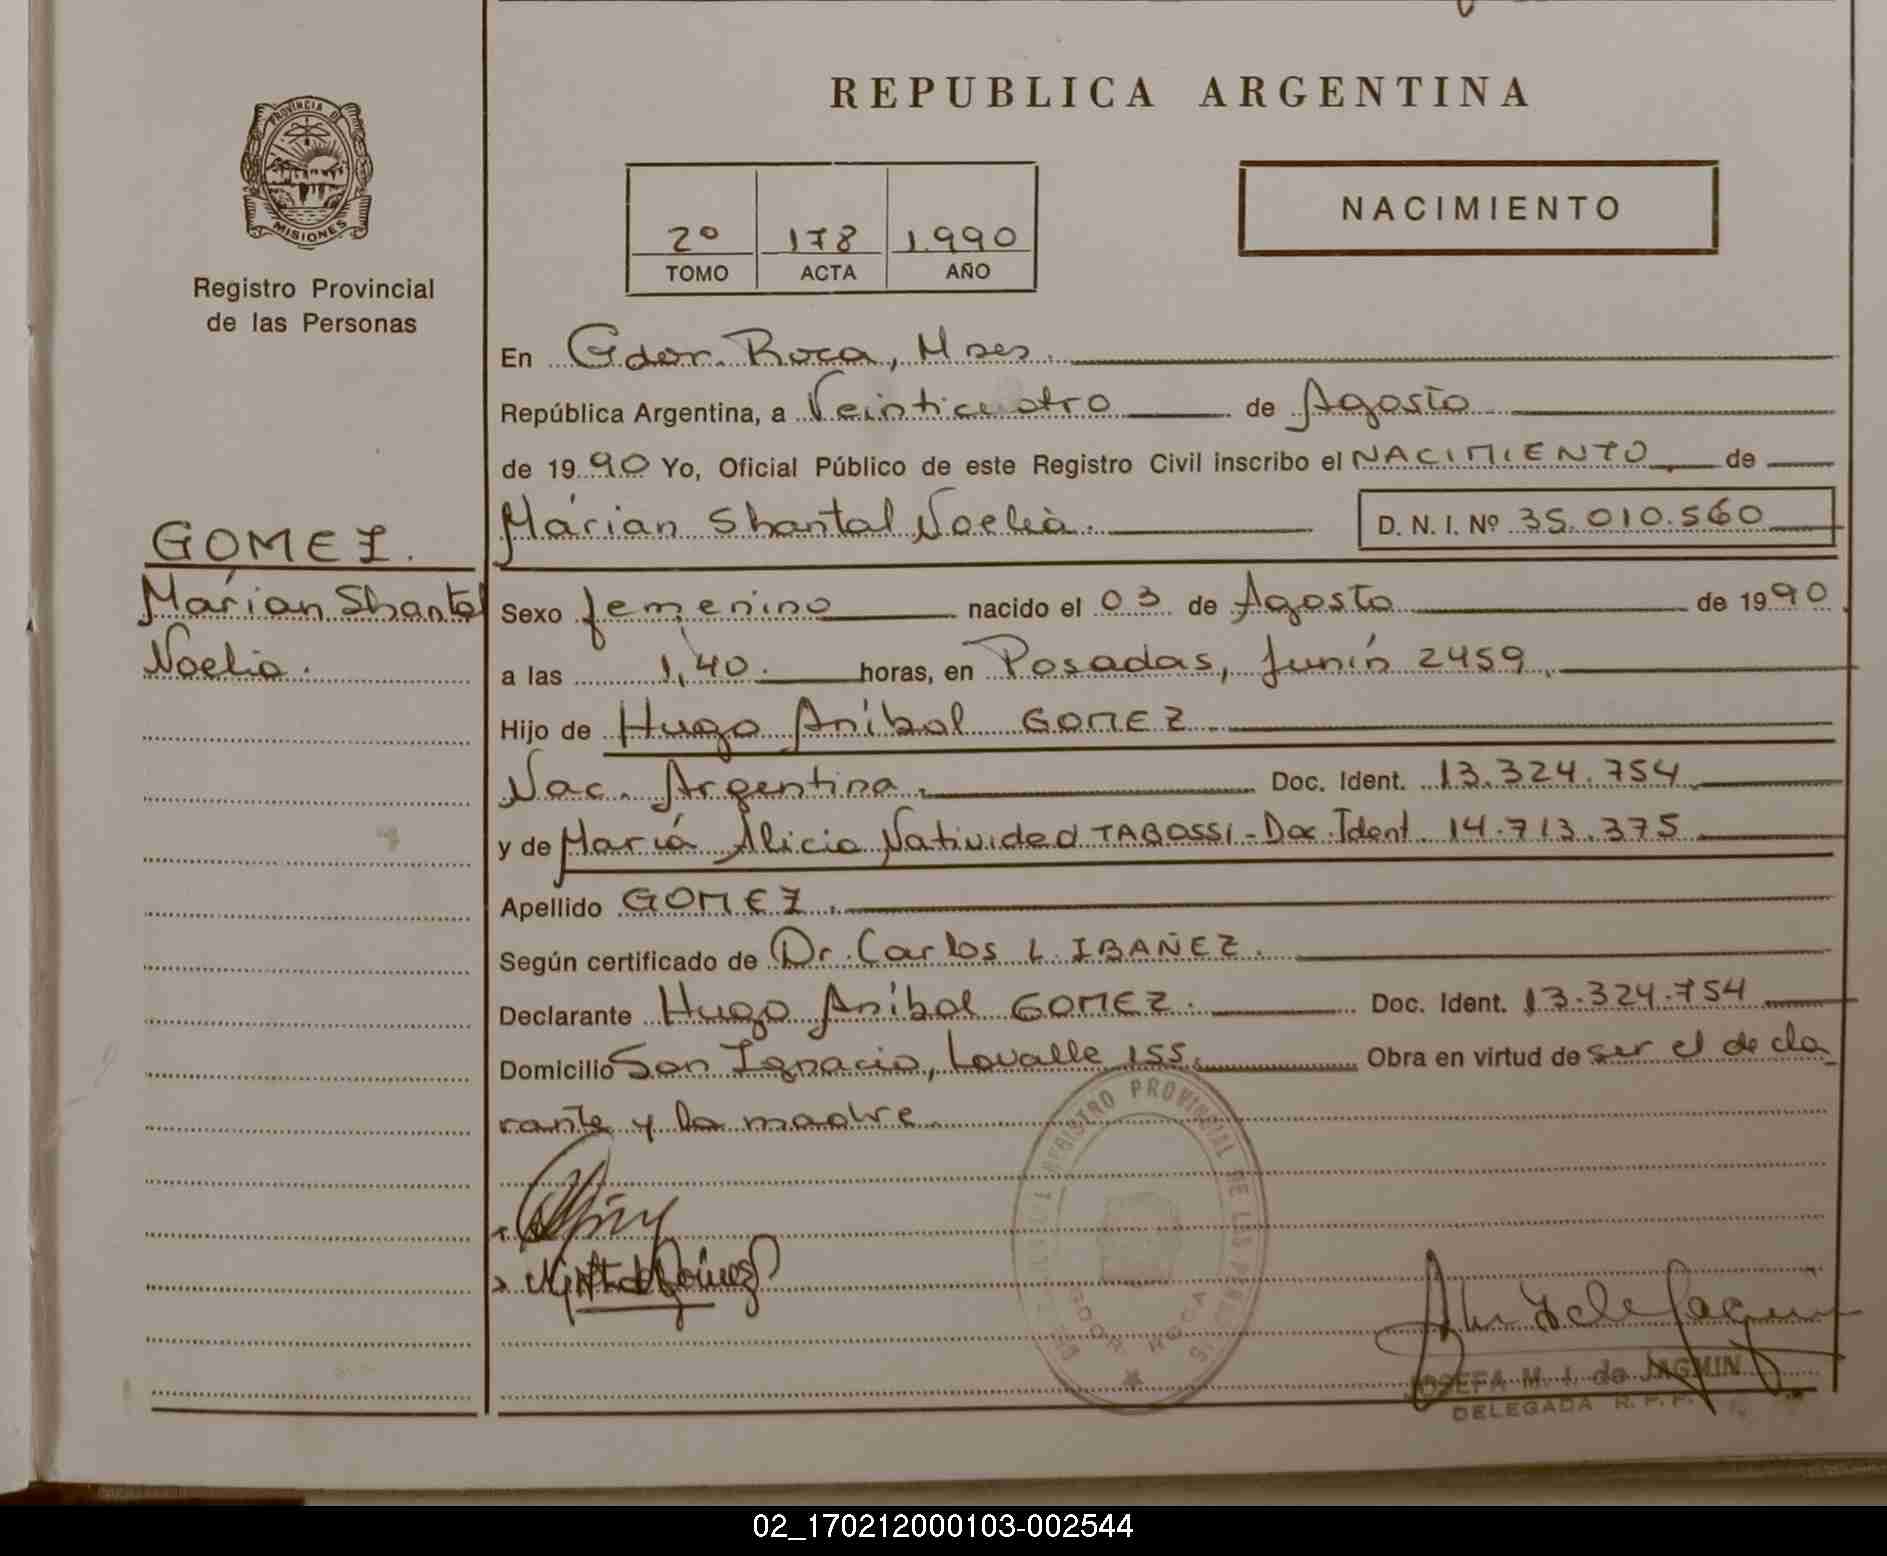 REPUBLICA ARGENTINA
PROVINCIA DE
MISIONES
Registro Provincial
de las Personas
2º 178 1.990
TOMO ACTA AÑO
NACIMIENTO
En Gdor. Roca, Mnes.
República Argentina, a Veinticuatro de Agosto
de 1990 Yo, Oficial Público de este Registro Civil inscribo el NACIMIENTO de
Márian Shantal Noelia. D. N. I. Nº 35.010.560
GOMEZ.
Márian Shantal
Noelia.
Sexo femenino nacido el 03 de Agosto de 1990
a las 1,40. horas, en Posadas, Junín 2459.
Hijo de Hugo Aníbal GOMEZ
Nac. Argentina. Doc. Ident. 13.324.754
y de María Alicia Natividad TABOSSI - Doc. Ident. 14.713.375
Apellido GOMEZ.
Según certificado de Dr. Carlos L. IBAÑEZ.
Declarante Hugo Aníbal GOMEZ. Doc. Ident. 13.324.754
Domicilio San Ignacio, Lavalle 155. Obra en virtud de ser el decla
rante y la madre.
REGISTRO PROVINCIAL DE LAS PERSONAS
GDOR. ROCA
JOSEFA M. I. de JAGMIN
DELEGADA R. P. P.
02_170212000103-002544